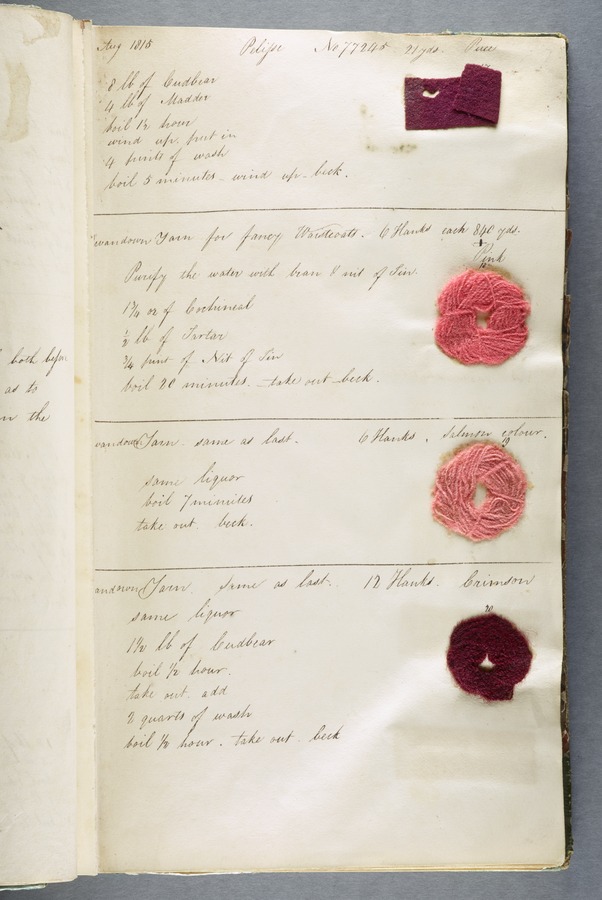 Aug 1815 Pelisse No 77245 21 yds. Puce
8 lb of Cudbear
4 lb of Madder
boil 1½ hour
wind up. put in
4 pints of wash
boil 5 minutes - wind up - beck.
Swandown Yarn for fancy Waistcoats. 6 Hanks each 840 yds.
Pink
Purify the water with bran & nit of Tin.
1¾ oz of Cochineal
½ lb of Tartar
¾ pint of Nit of Tin
boil 20 minutes. - take out - beck.
wandown Yarn. same as last. 6 Hanks. Salmon colour.
19
same liquor
boil 7 minutes
take out. beck.
andown Yarn. same as last. 12 Hanks. Crimson
20
same liquor
1½ lb of Cudbear
boil ½ hour.
take out. add
2 quarts of wash
boil ½ hour. take out. beck
both before
as to
the